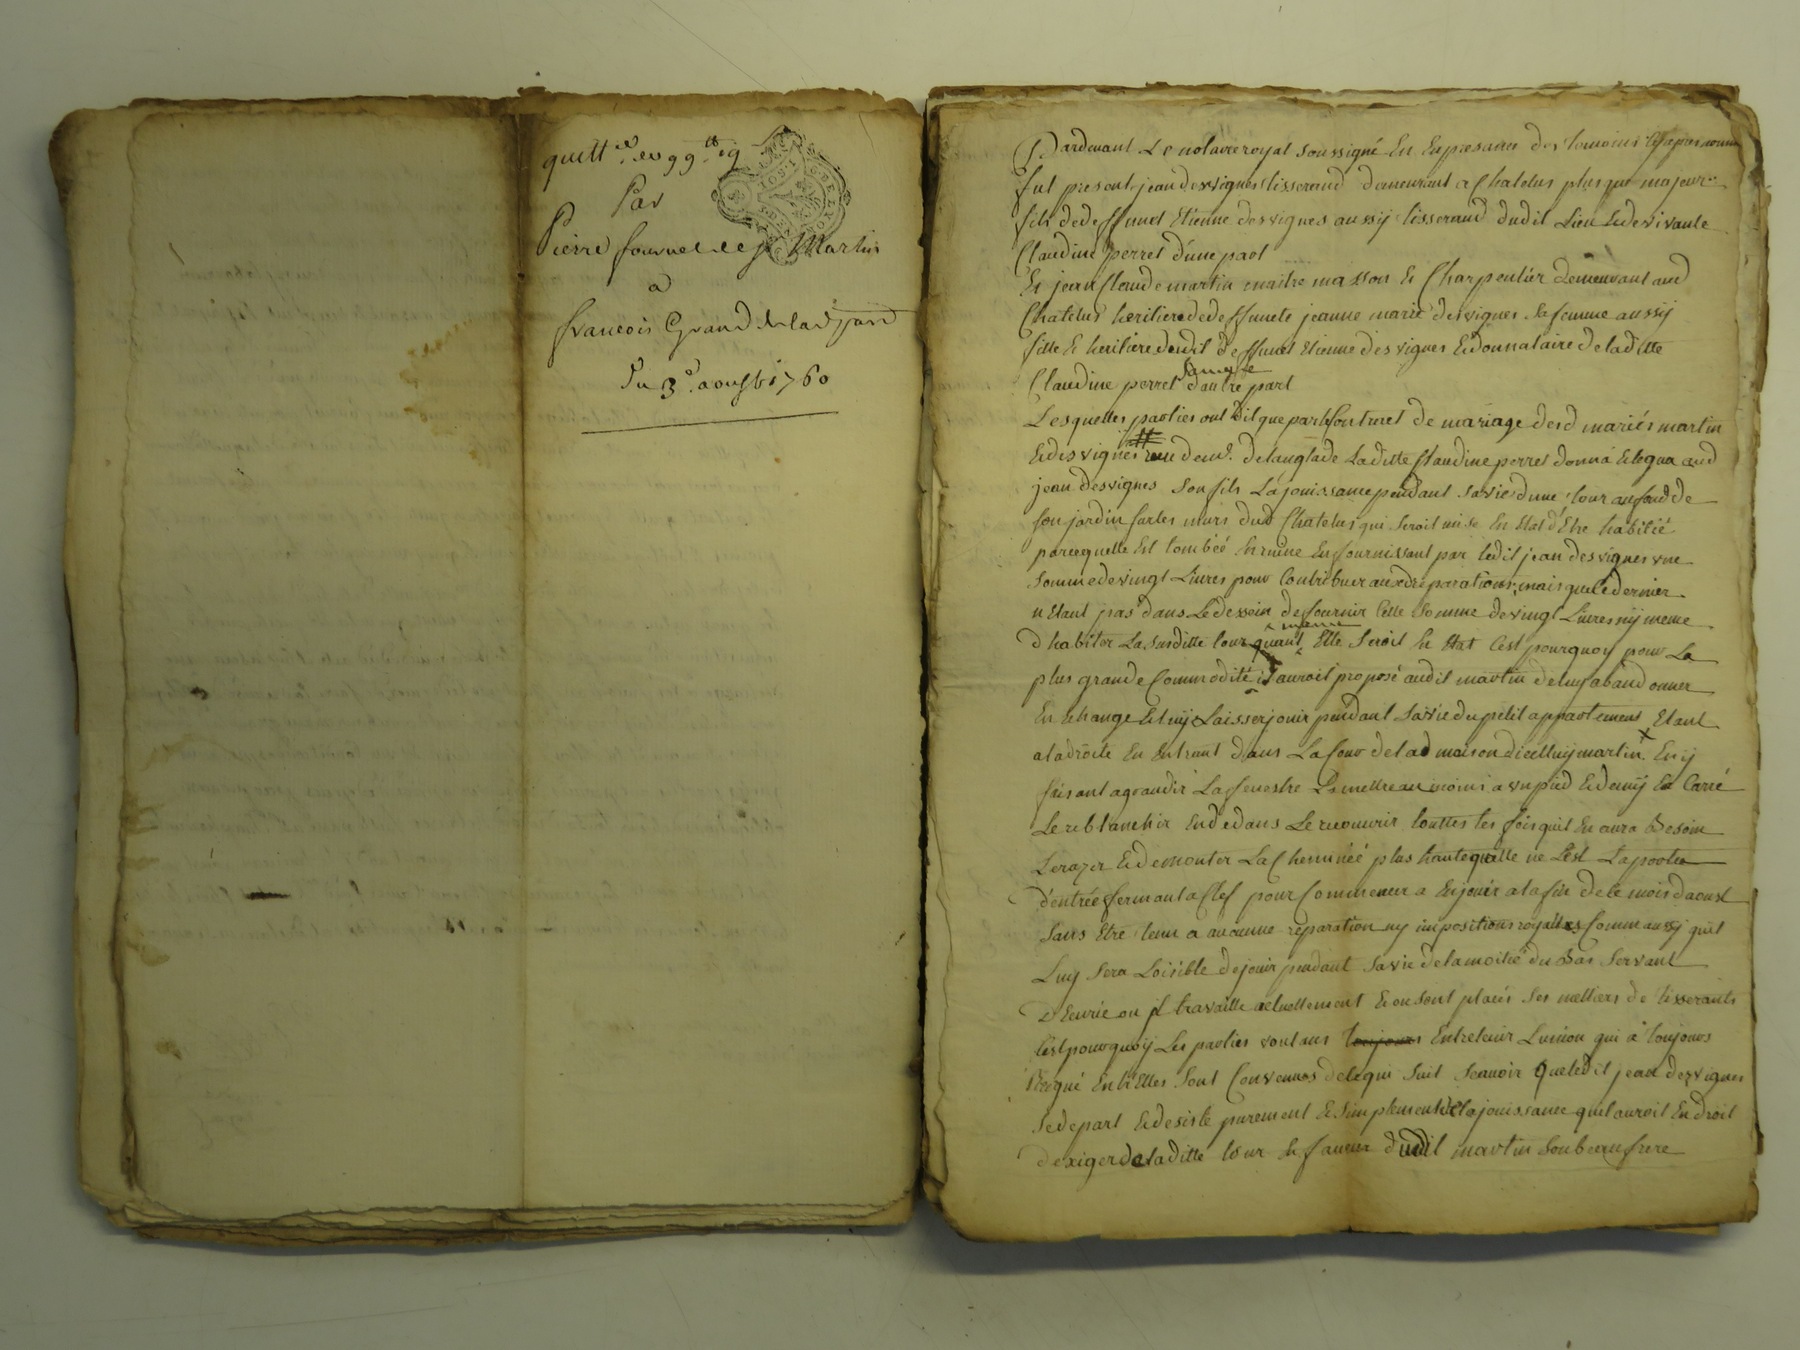 quitt.ce de 99 lt 19
Par
Pierre fournel de St Martin
a
francois Grand
Du 3e. aoust 1760
Pardevant Le notaire royal soussigné En En presance des temoins cy apres nommés
fut present jean desvignes tisserand demeurant a Chatelus plus que majeur
fils de deffunct Etienne desvignes aussy tisserand dudit Lieu Et de vivante
Claudine perret d'une part
Et jean Claude martin maitre masson Et Charpentier demeurant aud
Chatelus heritier de deffuncte jeanne marie desvignes sa femme aussy
fille Et heritiere dudit deffunct Etienne desvignes Et donnataire de laditte
Claudine perret sa mere d'autre part
Lesquelles parties ont dit que par le Contract de mariage desd mariés martin
Et desvignes reçu de me. delanglade Laditte Claudine perret donna Et legua aud
jean desvignes son fils La jouissance pendant sa vie d'une tour au fond de
son jardin sur les murs dud Chatelus qui seroit mise En Etat d'Etre habitée
parcequelle Est tombéé En ruine En fournissant par ledit jean desvignes une
somme de vingt Livres pour Contribuer aux reparations, mais que Ce dernier
n'Etant pas dans Le dessein de fournir Cette somme de vingt Livres ny meme
d'habiter La susditte tour quant meme Elle seroit En Etat C'est pourquoy pour La
plus grande Commodité il auroit proposé audit martin de luy abandonner
En Echange Et luy Laisser jouir pendant sa vie du petit appartement Etant
a la droite En Entrant dans La Cour de lad maison d'icelluy martin x En y
faisant agrandir La fenestre La mettre au moins a un pied Et demy En Carré
Le reblanchir En dedans Le recouvrir touttes les fois quil En aura Besoin
Et de monter La Cheminéé plus haute quelle ne L'est La porte
d'entréé fermant a Clef pour Commencer a En jouir a la fin de Ce mois d'aoust
sans Etre tenu a aucunne reparation ny impositions royalles Comm aussy quil
Luy sera Loisible de jouir pendant sa vie de la moitié du Bas servant
d'Ecurie ou il travaille actuellement Et ou sont placés ses mettiers de tisserants
C'est pourquoy Les parties voulans toujours Entretenir L'union qui a toujours
Regné Entr'Elles sont Convenues de ce qui suit scavoir Que ledit jean desvignes
se depart Et desiste purement Et simplement de la jouissance quil auroit En droit
d'exiger de laditte tour En faveur dudit martin son beaufrere